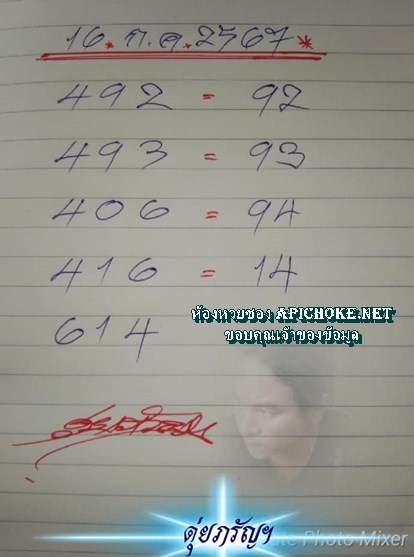 16.ก.ค.2567*
492 = 92
493 = 93
406 = 94
416 = 14
614
ห้องหวยซอง APICHOKE.NET
ขอบคุณเจ้าของข้อมูล
ดุ่ยภรัญฯ
Photo Mixer